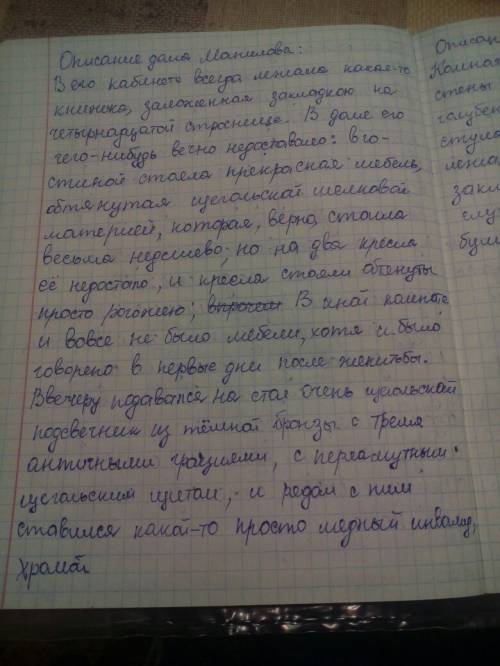 Описание дома Манилова:
В его кабинете всегда лежала какая-то
книжка, заложенная закладкою на
четырнадцатой странице. В доме его
чего-нибудь вечно недоставало: в го-
стиной стояла прекрасная мебель,
обтянутая щегольской шелковой
материей, которая, верно, стоила
весьма недешево; но на два кресла
её недостало, и кресла стояли обтянуты
просто рогожею; впрочем В иной комнате
и вовсе не было мебели, хотя и было
говорено в первые дни после женитьбы.
Ввечеру подавался на стол очень щегольской
подсвечник из тёмной бронзы с тремя
античными грациями, с перламутным
щегольским щитом, и рядом с ним
ставился какой-то просто медный инвалид,
хромой
Описан
Комна
стены
голубен
стула
лежа
закл
слу
бум